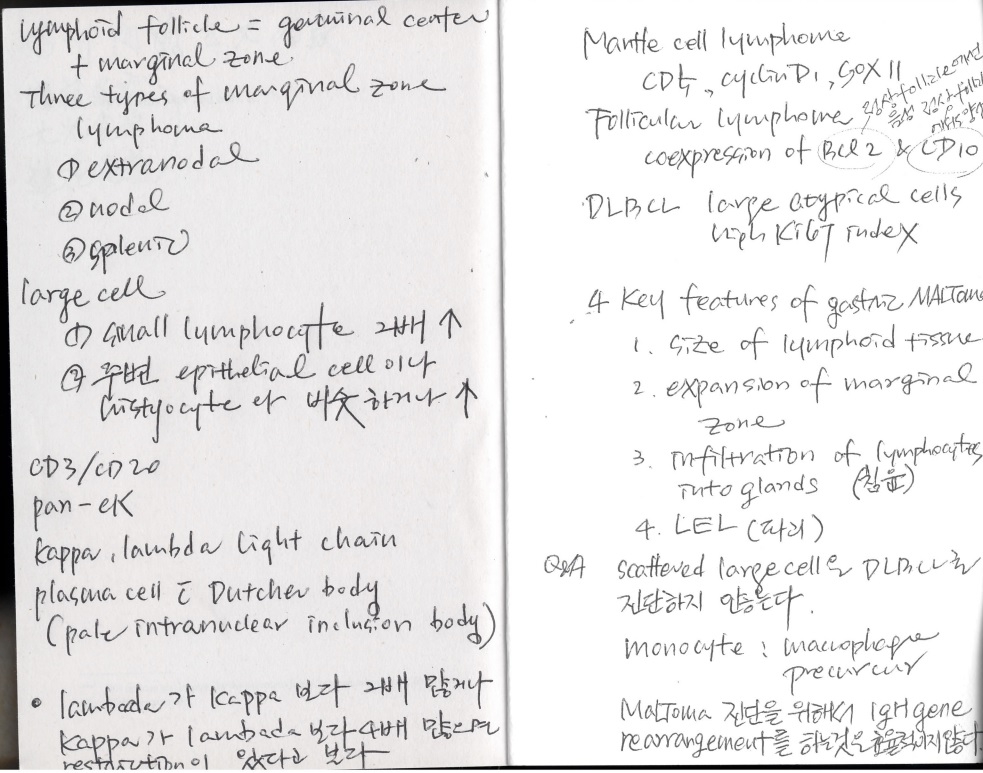 lymphoid follicle = germinal center
+ marginal zone
Three types of marginal zone
lymphoma
① extranodal
② nodal
③ splenic
large cell
① small lymphocyte 2배 ↑
② 주변 epithelial cell 이나
histyocyte 와 비슷하거나 ↑
CD3/CD20
pan-CK
kappa, lambda light chain
plasma cell c̄ Dutcher body
(pale intranuclear inclusion body)
• lambada가 kappa 보다 2배 많거나
kappa가 lambada 보다 4배 많으면
restriction이 있다고 본다
Mantle cell lymphoma
CD5, cyclin D1, SOX 11
Follicular lymphoma
정상 follicle에선
음성 정상 follicle
에서도 양성
coexpression of Bcl 2 & CD10
DLBCL large atypical cells
high Ki67 index
4 Key features of gastric MALToma
1. size of lymphoid tissue
2. expansion of marginal
zone
3. infiltration of lymphocytes
into glands (침윤)
4. LEL (파괴)
Q&A scattered large cell은 DLBCL로
진단하지 않는다.
monocyte : macrophage
precurcur
MALToma 진단을 위해서 IgH gene
rearrangement를 하는것은 효율적이지 않다